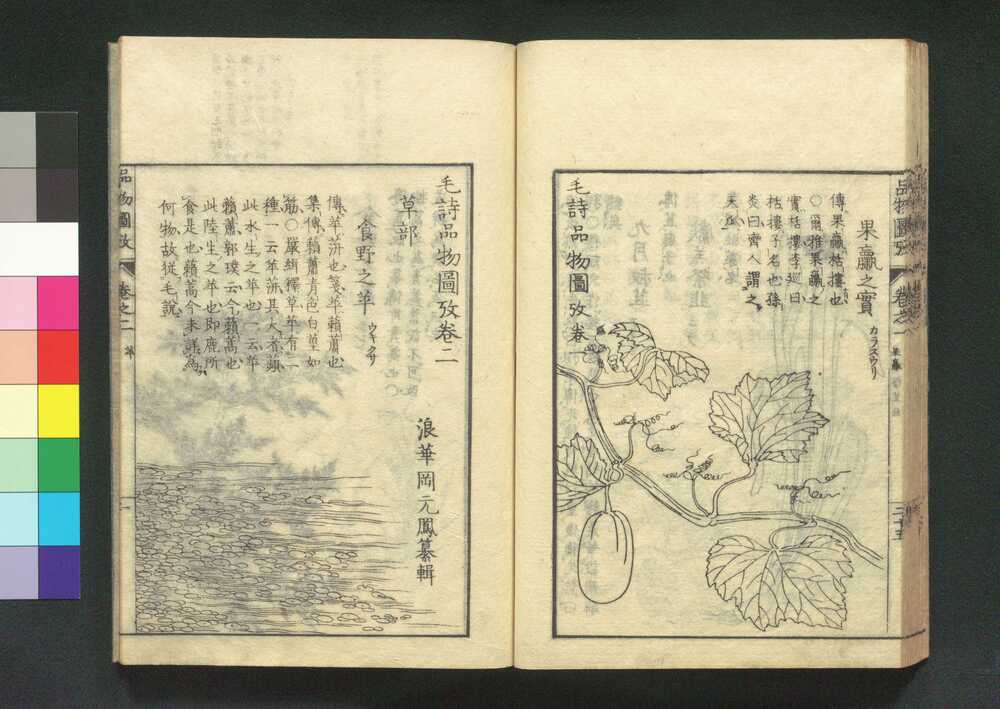 果臝之實
カラスウリ
傳果臝栝樓也
○爾雅果臝之
實栝樓李巡曰
栝樓子名也孫
炎曰齊人謂之
天瓜
毛詩品物圖攷卷一
品物圖攷
卷之一
二十五
毛詩品物圖攷卷二
草部
浪華岡元鳳纂輯
食野之苹
ウキクサ
傳苹蓱也箋苹藾蕭也
集傳藾蕭青色白莖如
筋○嚴緝釋草苹有二
種一云苹蓱其大者蘋
此水生之苹也一云苹
藾蕭郭璞云今藾蒿也
此陸生之苹也即鹿所
食是也藾蒿今未詳為
何物故從毛說
品物圖攷
卷之二
苹
一